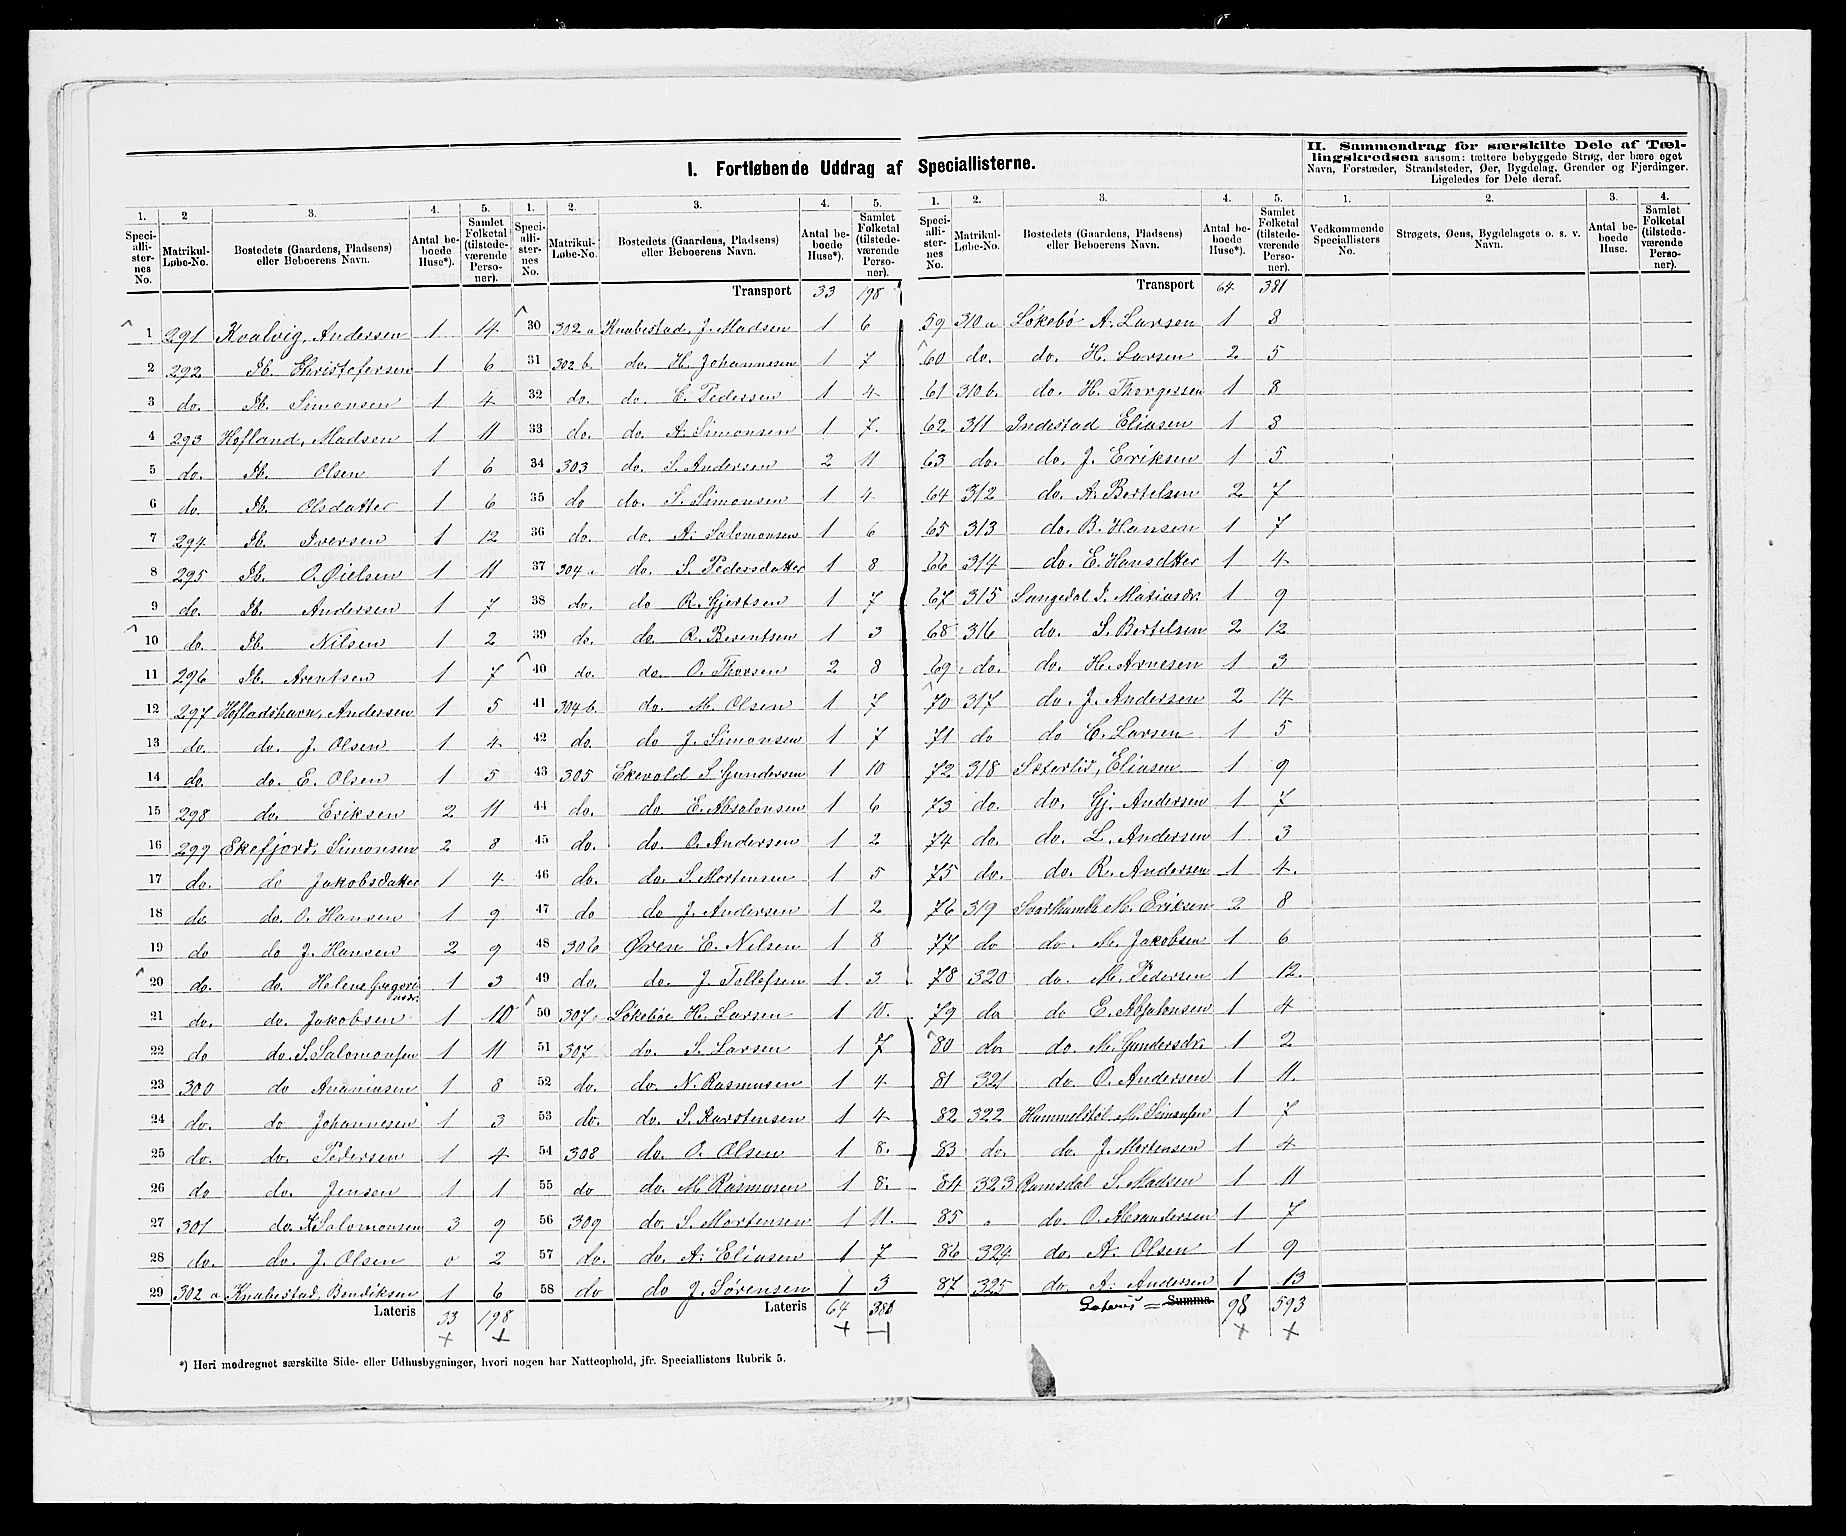 I. Fortløbende Uddrag af Speciallisterne.
II. Sammendrag for særskilte Dele af Tæl-
lingskredsen saasom: tættere bebyggede Strøg, der bære eget
Navn, Forstæder, Strandsteder, Øer, Bygdelag, Grender og Fjerdinger.
Ligeledes for Dele deraf.
1. 2 3. 4. 5. 1. 2. 3. 4. 5. 1. 2. 3. 4. 5. 1. 2. 3. 4.
Speci-alli-ster-nes No. Matrikul-Løbe-No. Bostedets (Gaardens, Pladsens) eller Beboerens Navn. Antal be-boede Huse*). Samlet Folketal (tilstede-værende Perso-ner).
Speci-alli-ster-nes No. Matrikul-Løbe-No. Bostedets (Gaardens, Pladsens) eller Beboerens Navn. Antal be-boede Huse*). Samlet Folketal (tilstede-værende Perso-ner).
Speci-alli-ster-nes No. Matrikul-Løbe-No. Bostedets (Gaardens, Pladsens) eller Beboerens Navn. Antal be-boede Huse*). Samlet Folketal (tilstede-værende Perso-ner).
Vedkommende Speciallisters No. Strøgets, Øens, Bygdelagets o. s. v. Navn. Antal be-boede Huse. Samlet Folketal (tilstede-værende Perso-ner).
1 291 Kvalvig, Andersen 1 14
2 292 Ib. Christofersen 1 6
3 do. Ib. Simonsen 1 4
4 293 Hofland, Madsen 1 11
5 do. Ib. Olsen 1 6
6 do. Ib. Olsdatter 1 6
7 294 Ib. Iversen 1 12
8 295 Ib. O. Øielsen 1 11
9 do. Ib. Andersen 1 7
10 do. Ib. Nilsen 1 2
11 296 Ib. Arentsen 1 7
12 297 Hofladshavn, Andersen 1 5
13 do. do. J. Olsen 1 4
14 do. do. E. Olsen 1 5
15 298 do. Eriksen 2 11
16 299 Ekefjord, Simonsen 2 8
17 do. do Jakobsdatter 1 4
18 do. do. O. Hansen 1 9
19 do do J. Hansen 2 9
20 do. do. Helene Gregori 1 3
21 do. do. Jakobsen 1 10
22 do do. S. Salomonsen 1 11
23 300 do Ananiasen 1 8
24 do. do Johannesen 1 3
25 do. do. Pedersen 1 4
26 do do. Jensen 1 1
27 301 do. K Salomonsen 3 9
28 do. do. J. Olsen 0 2
29 302 a Knabestad, Bendiksen 1 6
Lateris 33 198
Transport 33 198
30 302 a Knabestad, J. Madsen 1 6
31 302 b. do. H. Johannesen 1 7
32 do. do. E. Pedersen 1 4
33 do. do. A. Simonsen 1 7.
34 303 do. S. Andersen 2 11
35 do do. S. Simonsen 1 4
36 do. do. A. Salomonsen 1 6
37 304 a do. S. Pedersdatter 1 8
38 do. do R. Gjertsen 1 7
39 do. do. R. Berentsen 1 3
40 do. do. O. Thorsen 2 8
41 304 b. do. M. Olsen 1 7
42 do. do J. Simonsen 1 7
43 305 Ekevold S Gundersen 1 10
44 do. do. E. Absalonsen 1 6
45 do. do. O. Andersen 1 2
46 do. do. S. Mortensen 1 5
47 do do J. Andersen 1 2
48 306 Øren E. Nilsen 1 8
49 do. do. J. Tollefsen 1 3
50 307. Løkebøe H. Larsen 1 10.
51 307 do. S. Larsen 1 7
52 do. do. N. Rasmusen 1 4
53 do. do. S. Karstensen 1 4
54 308 do. O. Olsen 1 8.
55 do do. M. Rasmusen 1 8.
56 309 do. S. Mortensen 1 11.
57 do. do. A. Eliasen 1 7
58 do do J. Sørensen 1 3
Lateris 64 381
Transport 64 381
59 310 a Løkebö A. Larsen 1 8
60 do. do. H. Larsen 2 5
61 310 b. do. H. Thorgersen 1 8
62 311 Indestad Eliasen 1 8
63 do. do. J. Eriksen 1 5
64 312 do. A. Bertelsen 2 7
65 313 do. B. Hansen 1 7
66 314 do. E. Hansdtter 1 4
67 315 Langedal I. Matiasdr. 1 9
68 316 do. S. Bertelsen 2 12
69 do. do. H. Arnesen 1 3
70 317 do. J. Andersen 2 14
71 do do C. Larsen 1 5
72 318 Sæterlid, Eliasen 1 9
73 do. do. Gj. Andersen 1 7
74 do. do. L. Andersen 1 3
75 do. do. R. Andersen 1 4.
76 319 M. Eriksen 2 8
77 do do. M. Jakobsen 1 6
78 320 do. M. Pedersen 1 12.
79 do do E. Absalonsen 1 4
80 do. do. M. Gundersdr. 1 2
81 321 do O. Andersen 1 11.
82 322 Hummelstöl M. Simonsen 1 7
83 do. do. J. Mortensen 1 4
84 323 Ramsdal S. Madsen 1 11
85 " do. O. Alexandersen 1 7
86 324 do. A. Olsen 1 9
87 325 do. A. Andersen 1 13
Lateris = Summa 98 593
*) Heri medregnet særskilte Side- eller Udhusbygninger, hvori nogen har Natteophold, jfr. Speciallistens Rubrik 5.